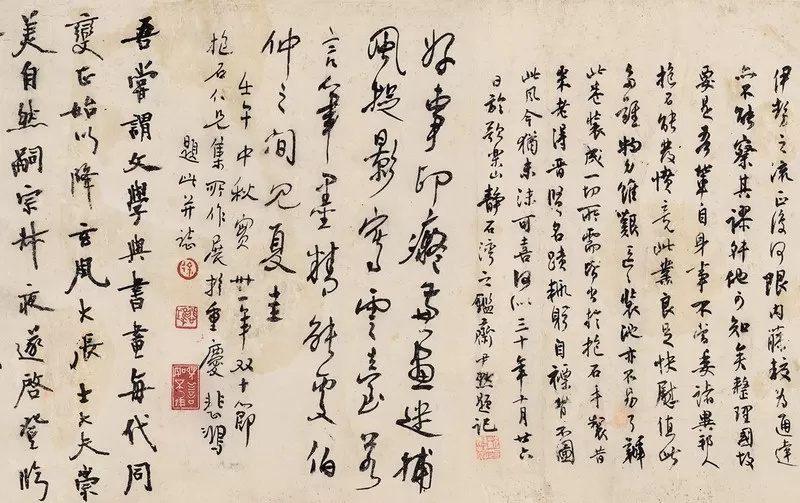 伊勢之流正復何限內藤較為通達
亦不能察其謬他可知矣整理國故
要是吾輩自身事不當委諸異邦人
抱石能發憤竟此業良足快慰值此
多難物力維艱之裝池亦不易了辦
此卷裝成一切所需皆出於抱石手製昔
米老得晉賢名蹟輒躬自褾背不圖
此風今猶未沫可喜何似三十年十月廿六
日於歌樂山靜石灣之鑑齋尹默題記
好事即癡畫迷捕
風捉影寫雲臺若
言筆墨精能處伯
仲之間見夏圭
壬午中秋實卅一年双十節
抱石仁兄集所作展於重慶悲鴻
題此并誌
吾嘗謂文學與書畫每代同
變正始以降玄風大張士大夫崇
美自然嗣宗林夜遂啓登臨